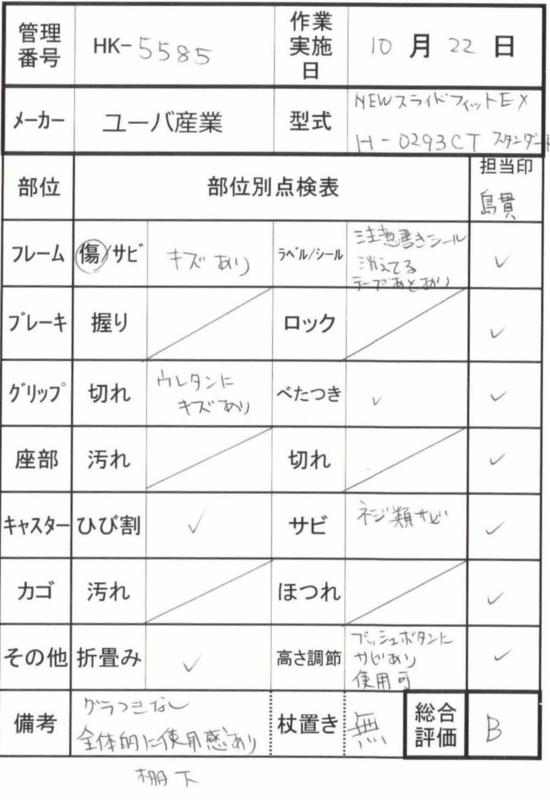 管理番号 HK-5585 作業実施日 10月22日
メーカー ユーバ産業 型式 NEWスライドフィットEX
H-0293CT スタンダード
部位 部位別点検表 担当印
島貫
フレーム 傷/サビ キズあり ラベル/シール 注意書きシール
消えてる
テープあとあり ✓
ブレーキ 握り ロック ✓
グリップ 切れ ウレタンに
キズあり べたつき ✓ ✓
座部 汚れ 切れ ✓
キャスター ひび割 ✓ サビ ネジ類サビ ✓
カゴ 汚れ ほつれ ✓
その他 折畳み ✓ 高さ調節 プッシュボタンに
サビあり
使用可 ✓
備考 グラつきなし
全体的に使用感あり 杖置き 無 総合評価 B
棚下